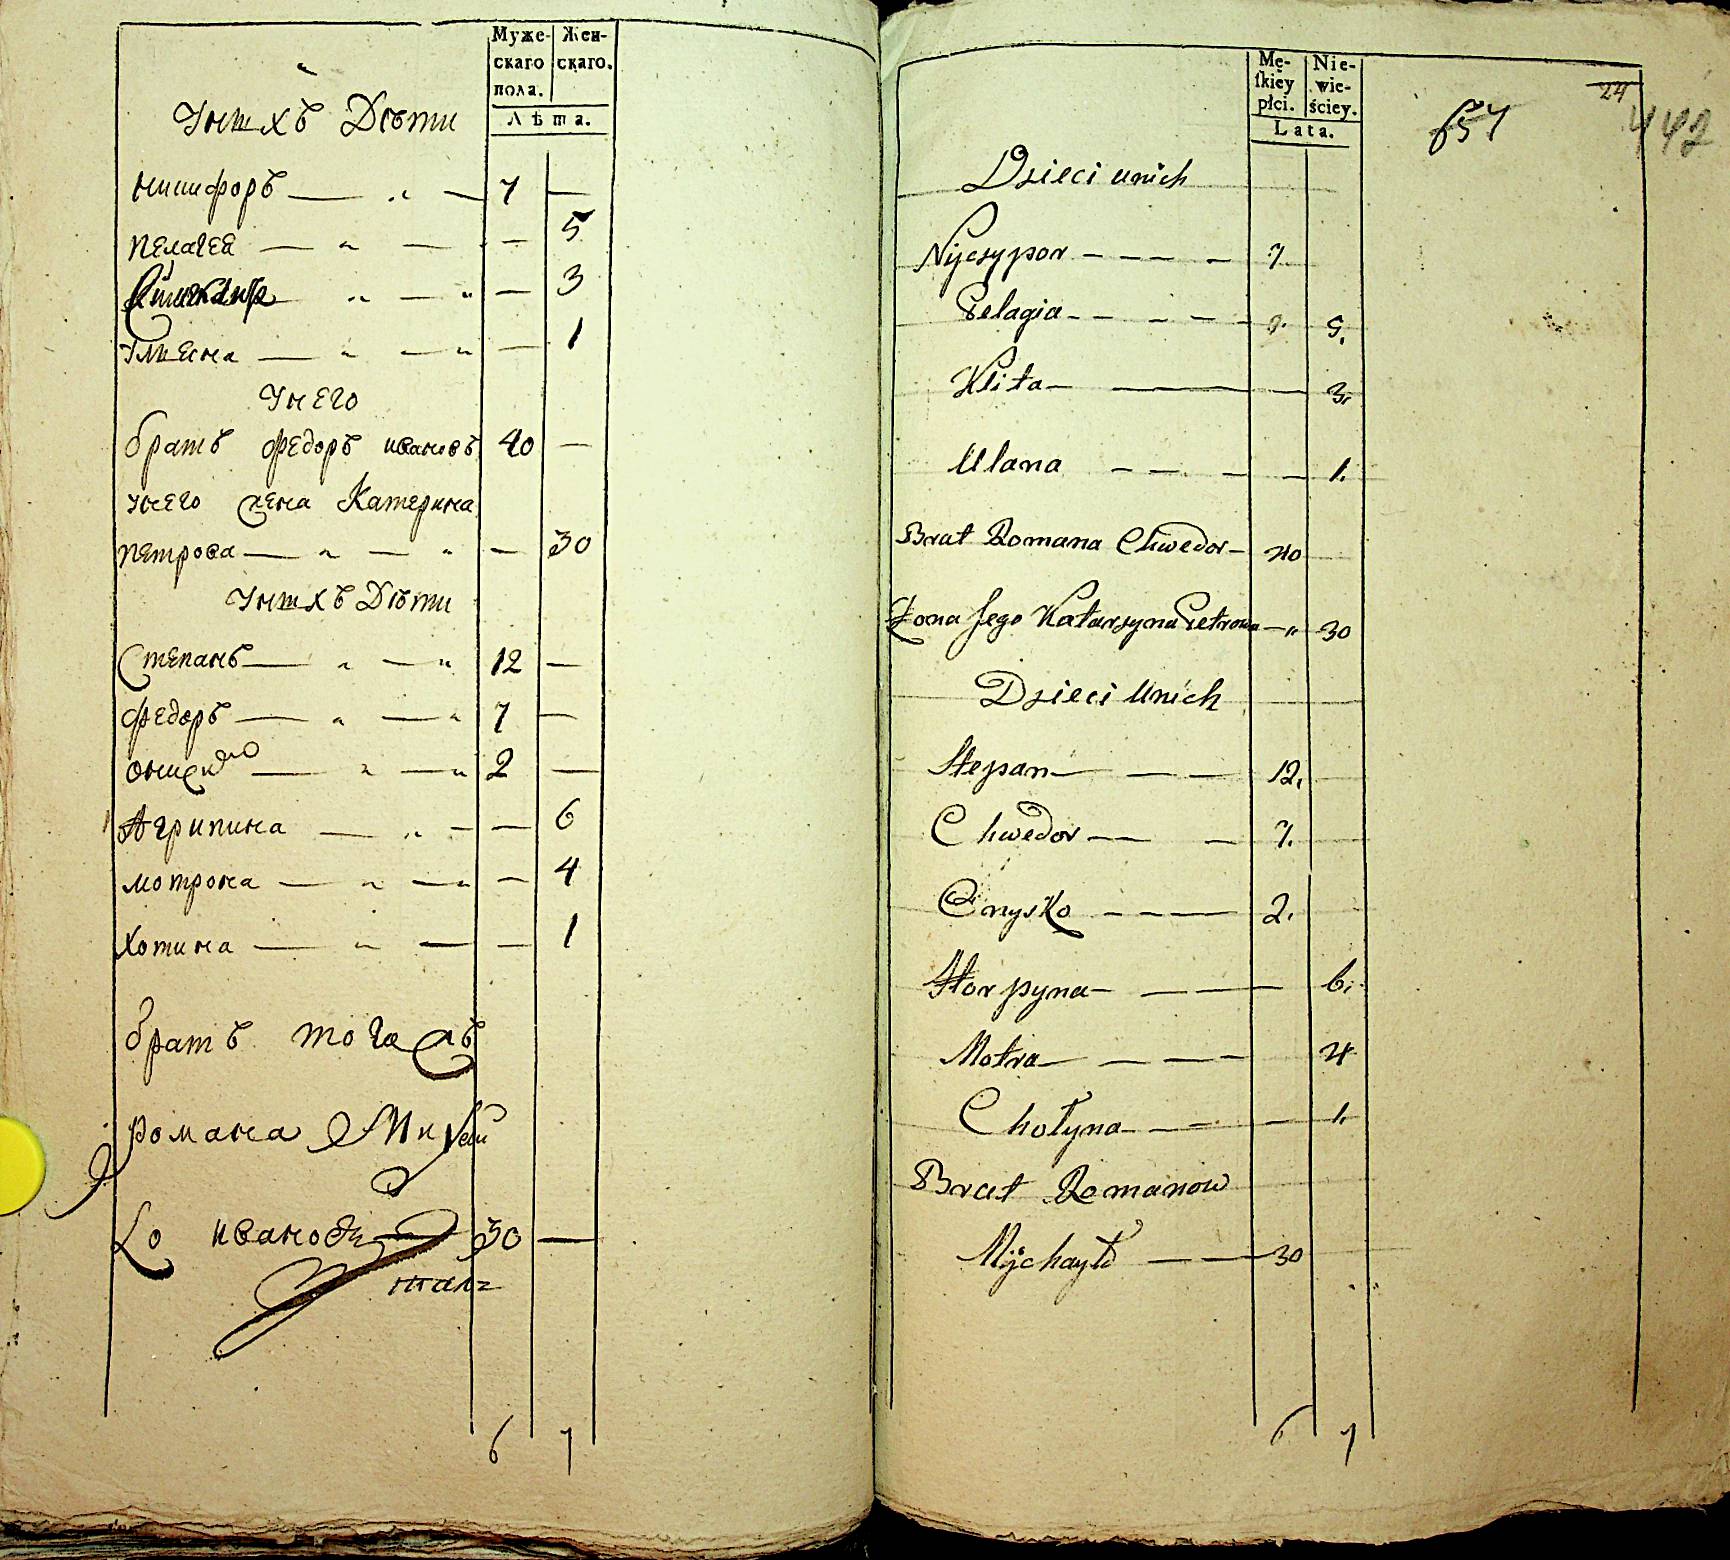 Муже-
скаго
пола.
Жен-
скаго.
Лѣта.
Унихъ Дѣти
никифоръ — „ — 7 —
пелагея — „ — — 5
— „ — „ — 3
улиёна — „ — „ — 1
Унего
братъ федоръ ивановъ 40 —
унего жена Катерина
петрова — „ — „ — 30
Унихъ Дѣти
Степанъ — „ — „ 12 —
федоръ — „ — „ 7 —
онисько — „ — „ 2 —
Агрипина — „ — — 6
мотрона — „ — „ — 4
хотина — „ — — 1
братъ тогожъ
романа Михай
ло ивановъ 30 —
6 7
Mę-
ſkiey
płci.
Nie-
wie-
ściey.
Lata.
657
24
442
Dzieci unich
Nyczypor — — — — 7
Pelagia — — — — 5.
Klita — — — 3.
Ulana — — — — 1.
Brat Romana Chwedor — 40
Żona Jego Katarzyna Petrowa — „ 30
Dzieci Unich
Stepan — — — 12.
Chwedor — — 7.
Onysko — — — 2.
Horpyna — — — 6.
Motra — — — 4
Chotyna — — — 1.
Brat Romanow
Mychayło — — 30
6 7